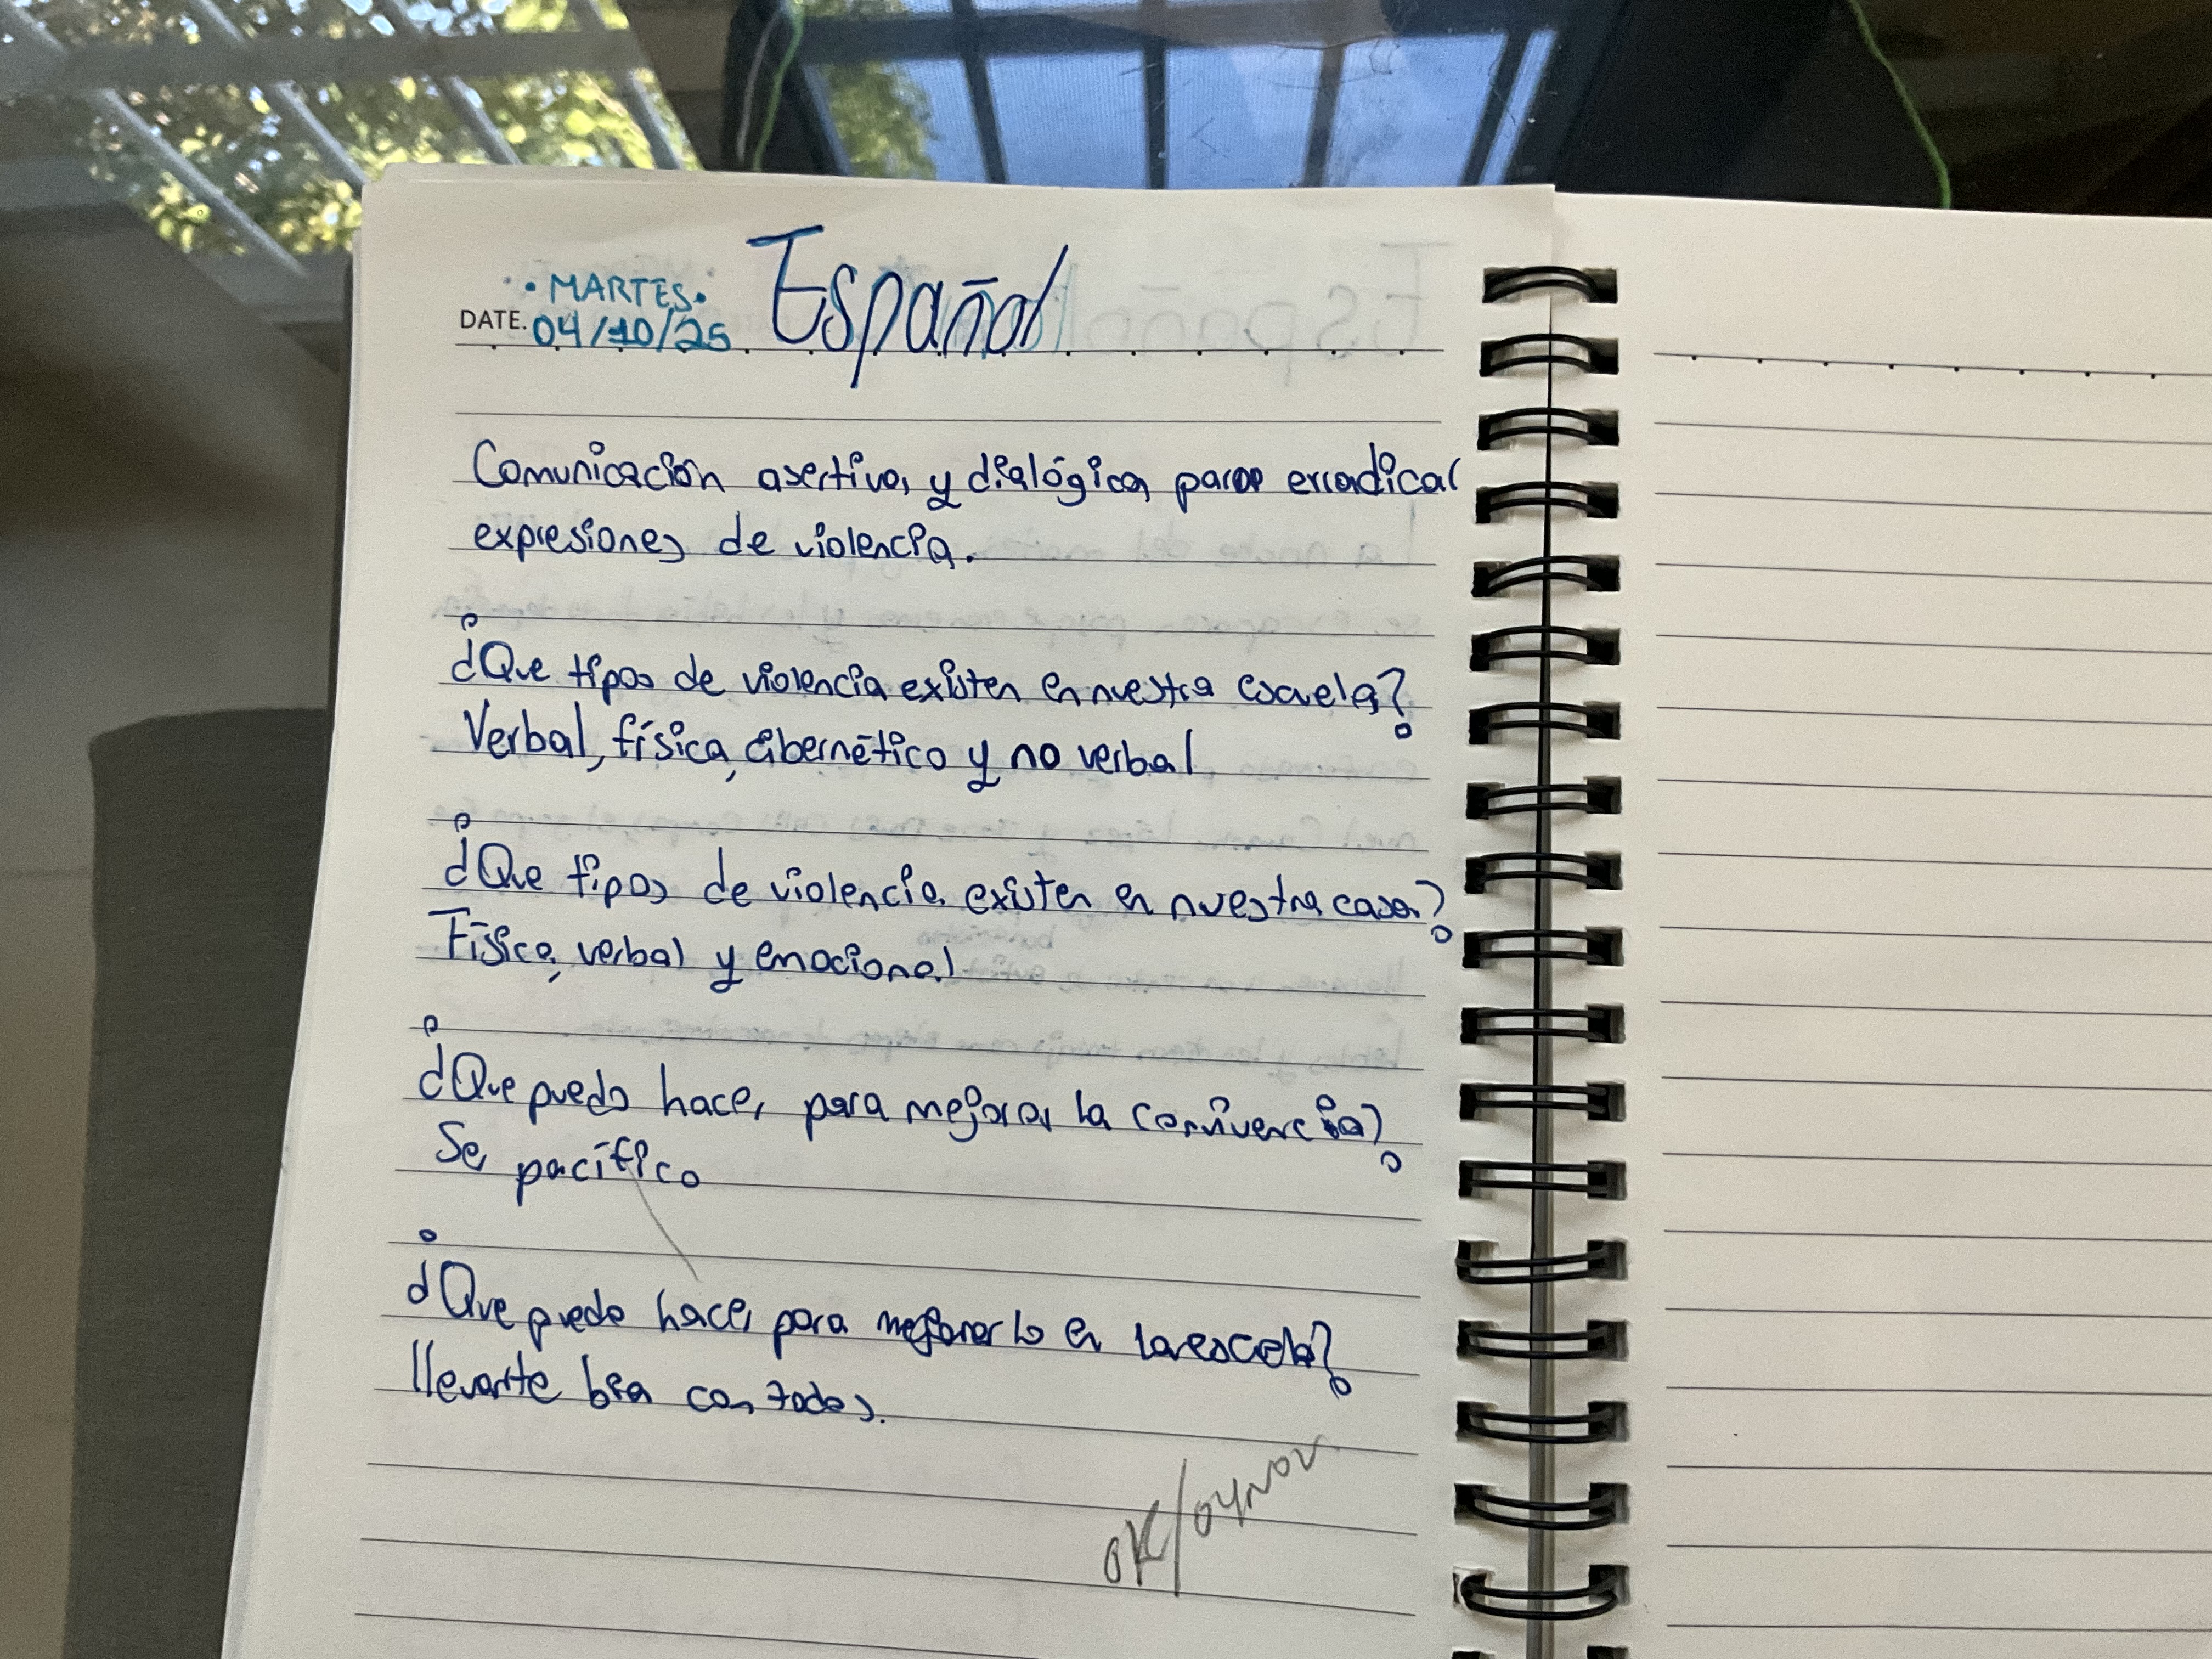 • MARTES •
Español
DATE. 04/10/25
Comunicación asertiva y dialógica para erradicar
expresiones de violencia.
¿Que tipos de violencia existen en nuestra escuela?
Verbal, física, cibernético y no verbal
¿Que tipos de violencia existen en nuestra casa?
Física, verbal y emocional
¿Que puedo hacer para mejorar la convivencia?
Ser pacífico
¿Que puedo hacer para mejorarlo en la escuela?
llevarte bien con todos.
OK/04NOV